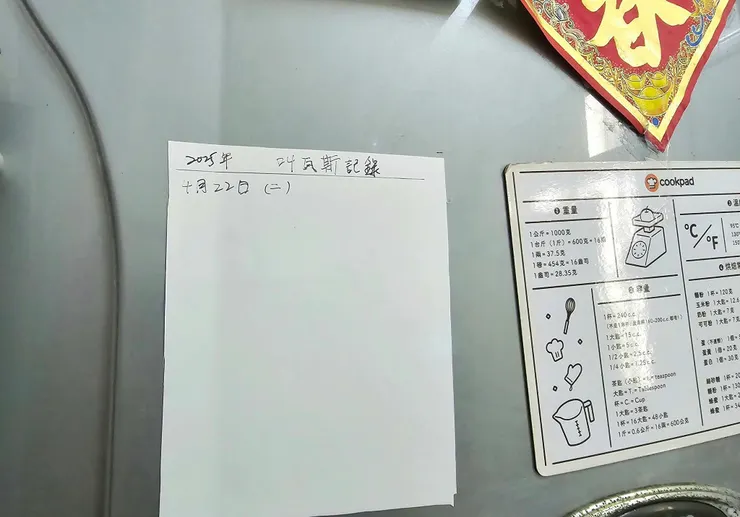 春
2025年 叫瓦斯記錄
十月22日 (二)
cookpad
❶ 重量
1公斤=1000克
1台斤(1斤)=600克=16兩
1兩=37.5克
1磅=454克=16盎司
1盎司=28.35克
❷ 容量
1杯=240c.c.
1大匙=15c.c.
1小匙=5c.c.
1/2小匙=2.5c.c.
1/4小匙=1.25c.c.
茶匙(小匙)=t. = teaspoon
大匙=T. = Tablespoon
杯=C. = Cup
1大匙=3茶匙
1杯=16大匙=48小匙
1斤=0.6公斤=16兩=600公克
°C/°F
麵粉 1杯=120克
玉米粉 1大匙=12.6
奶粉 1大匙=7克
可可粉 1大匙=7
蛋黃 1個=20克
蛋白 1個=30克